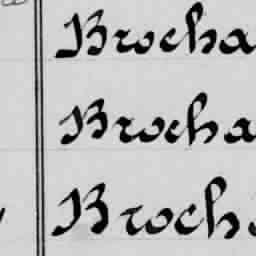 Brocha
Brocha
Broch